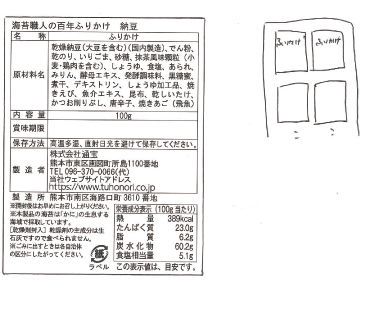 海苔職人の百年ふりかけ 納豆
名称 ふりかけ
原材料名 乾燥納豆(大豆を含む)(国内製造)、でん粉、
乾のり、いりごま、砂糖、抹茶風味顆粒(小
麦・鶏肉を含む)、しょうゆ、食塩、あられ、
みりん、酵母エキス、発酵調味料、黒糖蜜、
寒干、デキストリン、しょうゆ加工品、焼
きえび、魚介エキス、昆布、乾しいたけ、
かつお削りぶし、唐辛子、焼きあご(飛魚)
内容量 100g
賞味期限
保存方法 高温多湿、直射日光を避けて保存してください
製造者 株式会社通宝
熊本市東区画図町所島1100番地
TEL096-370-0066(代)
当社ウェブサイトアドレス
https://www.tuhonori.co.jp
製造所 熊本市南区海路口町3610番地
※開封後はお早めにお召し上がりください。
※本製品の海苔は「かに」の生息する
海域で採取しています。
[乾燥剤封入]乾燥剤の主成分は生
石灰ですので食べられません。
※ごみに出すときは各自治体
の区分にしたがってください。
紙
ラベル
栄養成分表示(100g当たり)
熱量 389kcal
たんぱく質 23.0g
脂質 6.2g
炭水化物 60.2g
食塩相当量 5.1g
この表示値は、目安です。
ふりかけ ふりかけ